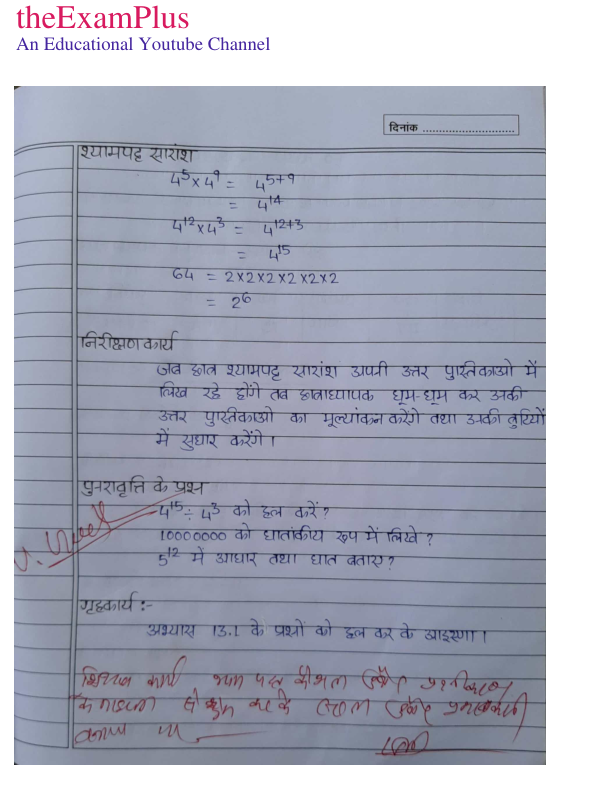 theExamPlus
An Educational Youtube Channel
दिनांक ............................
श्यामपट्ट सारांश
4⁵×4⁹ = 4⁵⁺⁹
= 4¹⁴
4¹²×4³ = 4¹²⁺³
= 4¹⁵
64 = 2×2×2×2×2×2
= 2⁶
निरीक्षण कार्य
जब छात्र श्यामपट्ट सारांश अपनी उत्तर पुस्तिकाओ में
लिख रहे होंगे तब छात्राध्यापक घूम-घूम कर उनकी
उत्तर पुस्तिकाओ का मूल्यांकन करेंगे तथा उनकी त्रुटियों
में सुधार करेंगे।
पुनरावृत्ति के प्रश्न
4¹⁵ ÷ 4³ को हल करें?
10000000 को घातांकीय रूप में लिखे?
5¹² में आधार तथा घात बताए?
गृहकार्य :-
अभ्यास 13.1 के प्रश्नों को हल कर के आइएगा।
शिक्षण कार्य